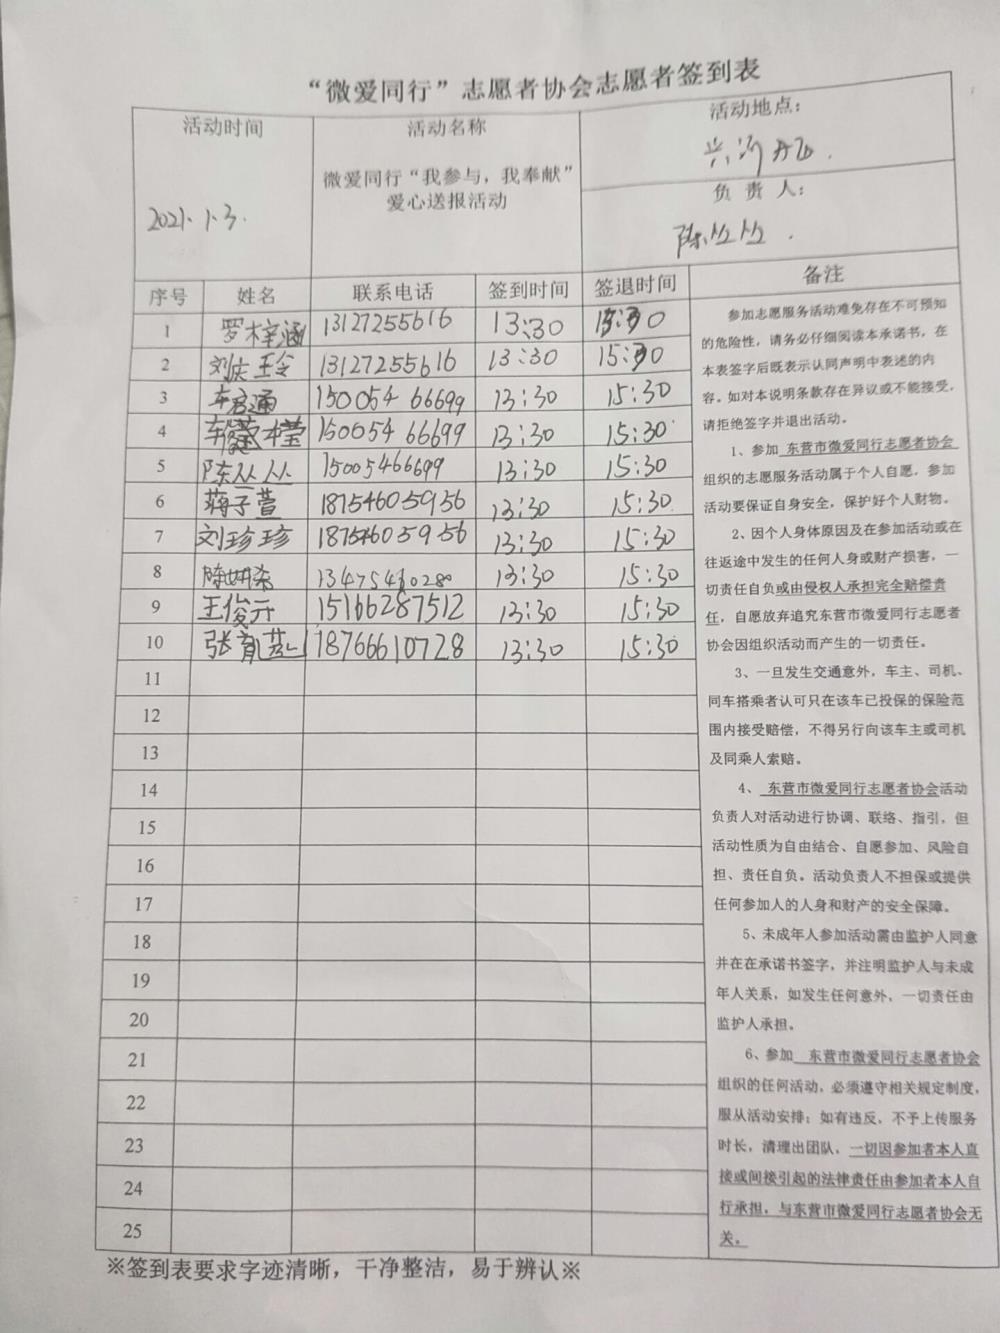 “微爱同行”志愿者协会志愿者签到表
活动时间
2021.1.3.
活动名称
微爱同行“我参与，我奉献”
爱心送报活动
活动地点：
负 责 人：
陈丛丛.
序号 姓名 联系电话 签到时间 签退时间 备注
1 罗梓涵 13127255616 13:30 15:30
2 刘庆玉令 13127255616 13:30 15:30
3 车君通 150054 66699 13:30 15:30
4 150054 66699 13:30 15:30
5 陈丛丛 15005466699 13:30 15:30
6 蒋子萱 18754605956 13:30 15:30
7 刘珍珍 18754605956 13:30 15:30
8 陈妍希 13475460280 13:30 15:30
9 王俊亓 15166287512 13:30 15:30
10 张 18766610728 13:30 15:30
11
12
13
14
15
16
17
18
19
20
21
22
23
24
25
参加志愿服务活动难免存在不可预知
的危险性，请务必仔细阅读本承诺书，在
本表签字后既表示认同声明中表述的内
容。如对本说明条款存在异议或不能接受，
请拒绝签字并退出活动。
1、参加 东营市微爱同行志愿者协会
组织的志愿服务活动属于个人自愿，参加
活动要保证自身安全，保护好个人财物。
2、因个人身体原因及在参加活动或在
往返途中发生的任何人身或财产损害，一
切责任自负或由侵权人承担完全赔偿责
任，自愿放弃追究东营市微爱同行志愿者
协会因组织活动而产生的一切责任。
3、一旦发生交通意外，车主、司机、
同车搭乘者认可只在该车已投保的保险范
围内接受赔偿，不得另行向该车主或司机
及同乘人索赔。
4、 东营市微爱同行志愿者协会活动
负责人对活动进行协调、联络、指引，但
活动性质为自由结合、自愿参加、风险自
担、责任自负。活动负责人不担保或提供
任何参加人的人身和财产的安全保障。
5、未成年人参加活动需由监护人同意
并在在承诺书签字，并注明监护人与未成
年人关系，如发生任何意外，一切责任由
监护人承担。
6、参加 东营市微爱同行志愿者协会
组织的任何活动，必须遵守相关规定制度，
服从活动安排；如有违反，不予上传服务
时长，清理出团队，一切因参加者本人直
接或间接引起的法律责任由参加者本人自
行承担，与东营市微爱同行志愿者协会无
关。
※签到表要求字迹清晰，干净整洁，易于辨认※